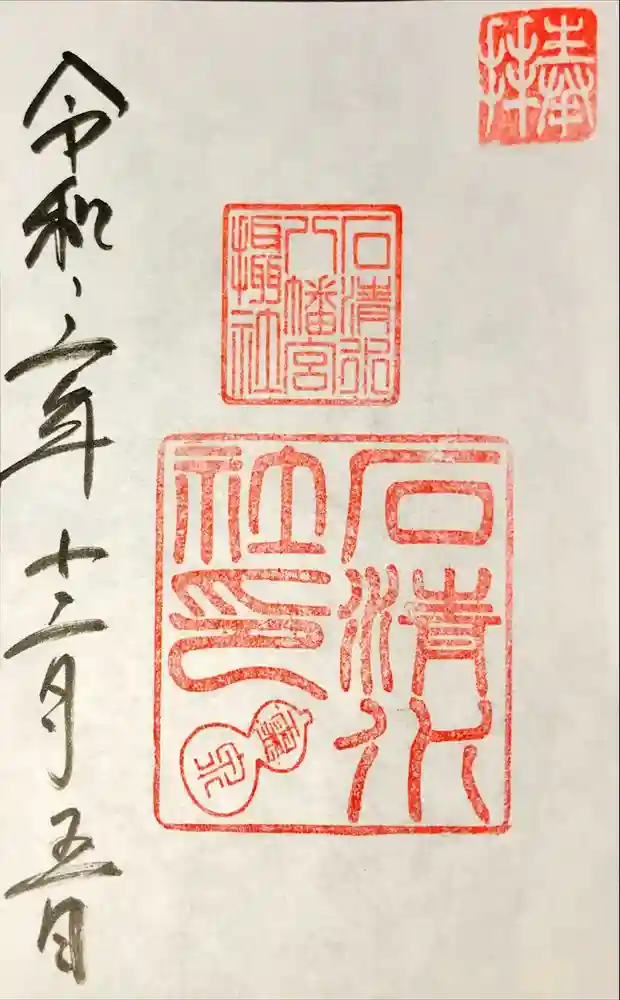 奉拝
石清水
八幡宮
攝社
石清水
社印
靈泉
令和六年十二月五日